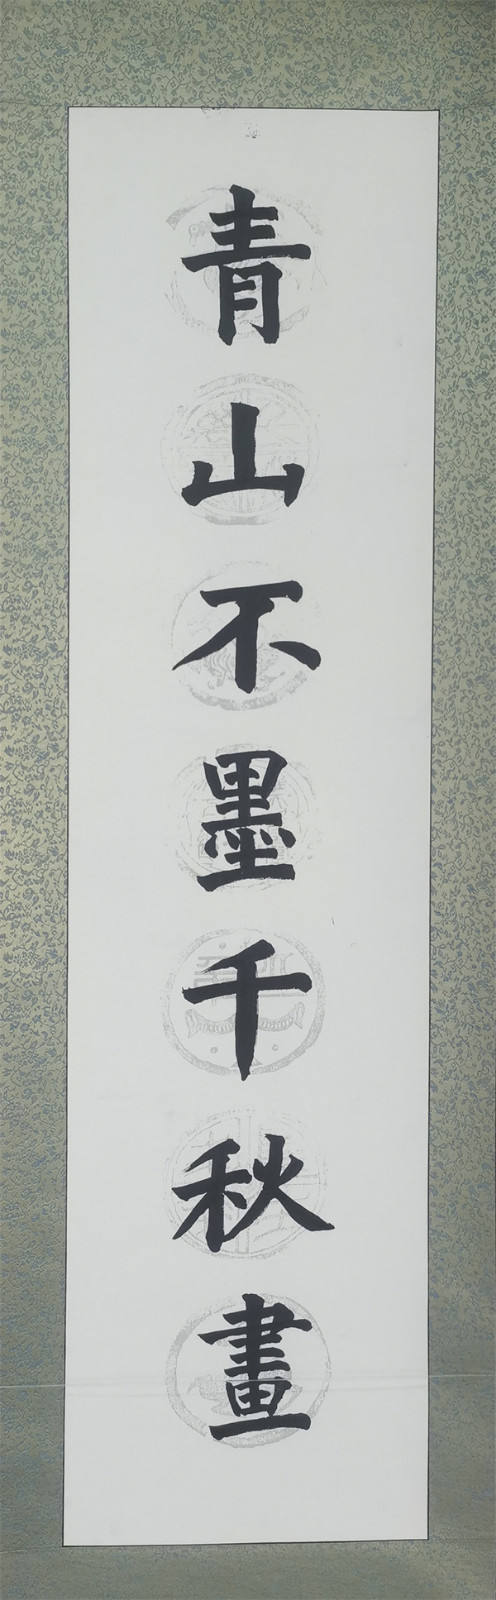 青山不墨千秋畫